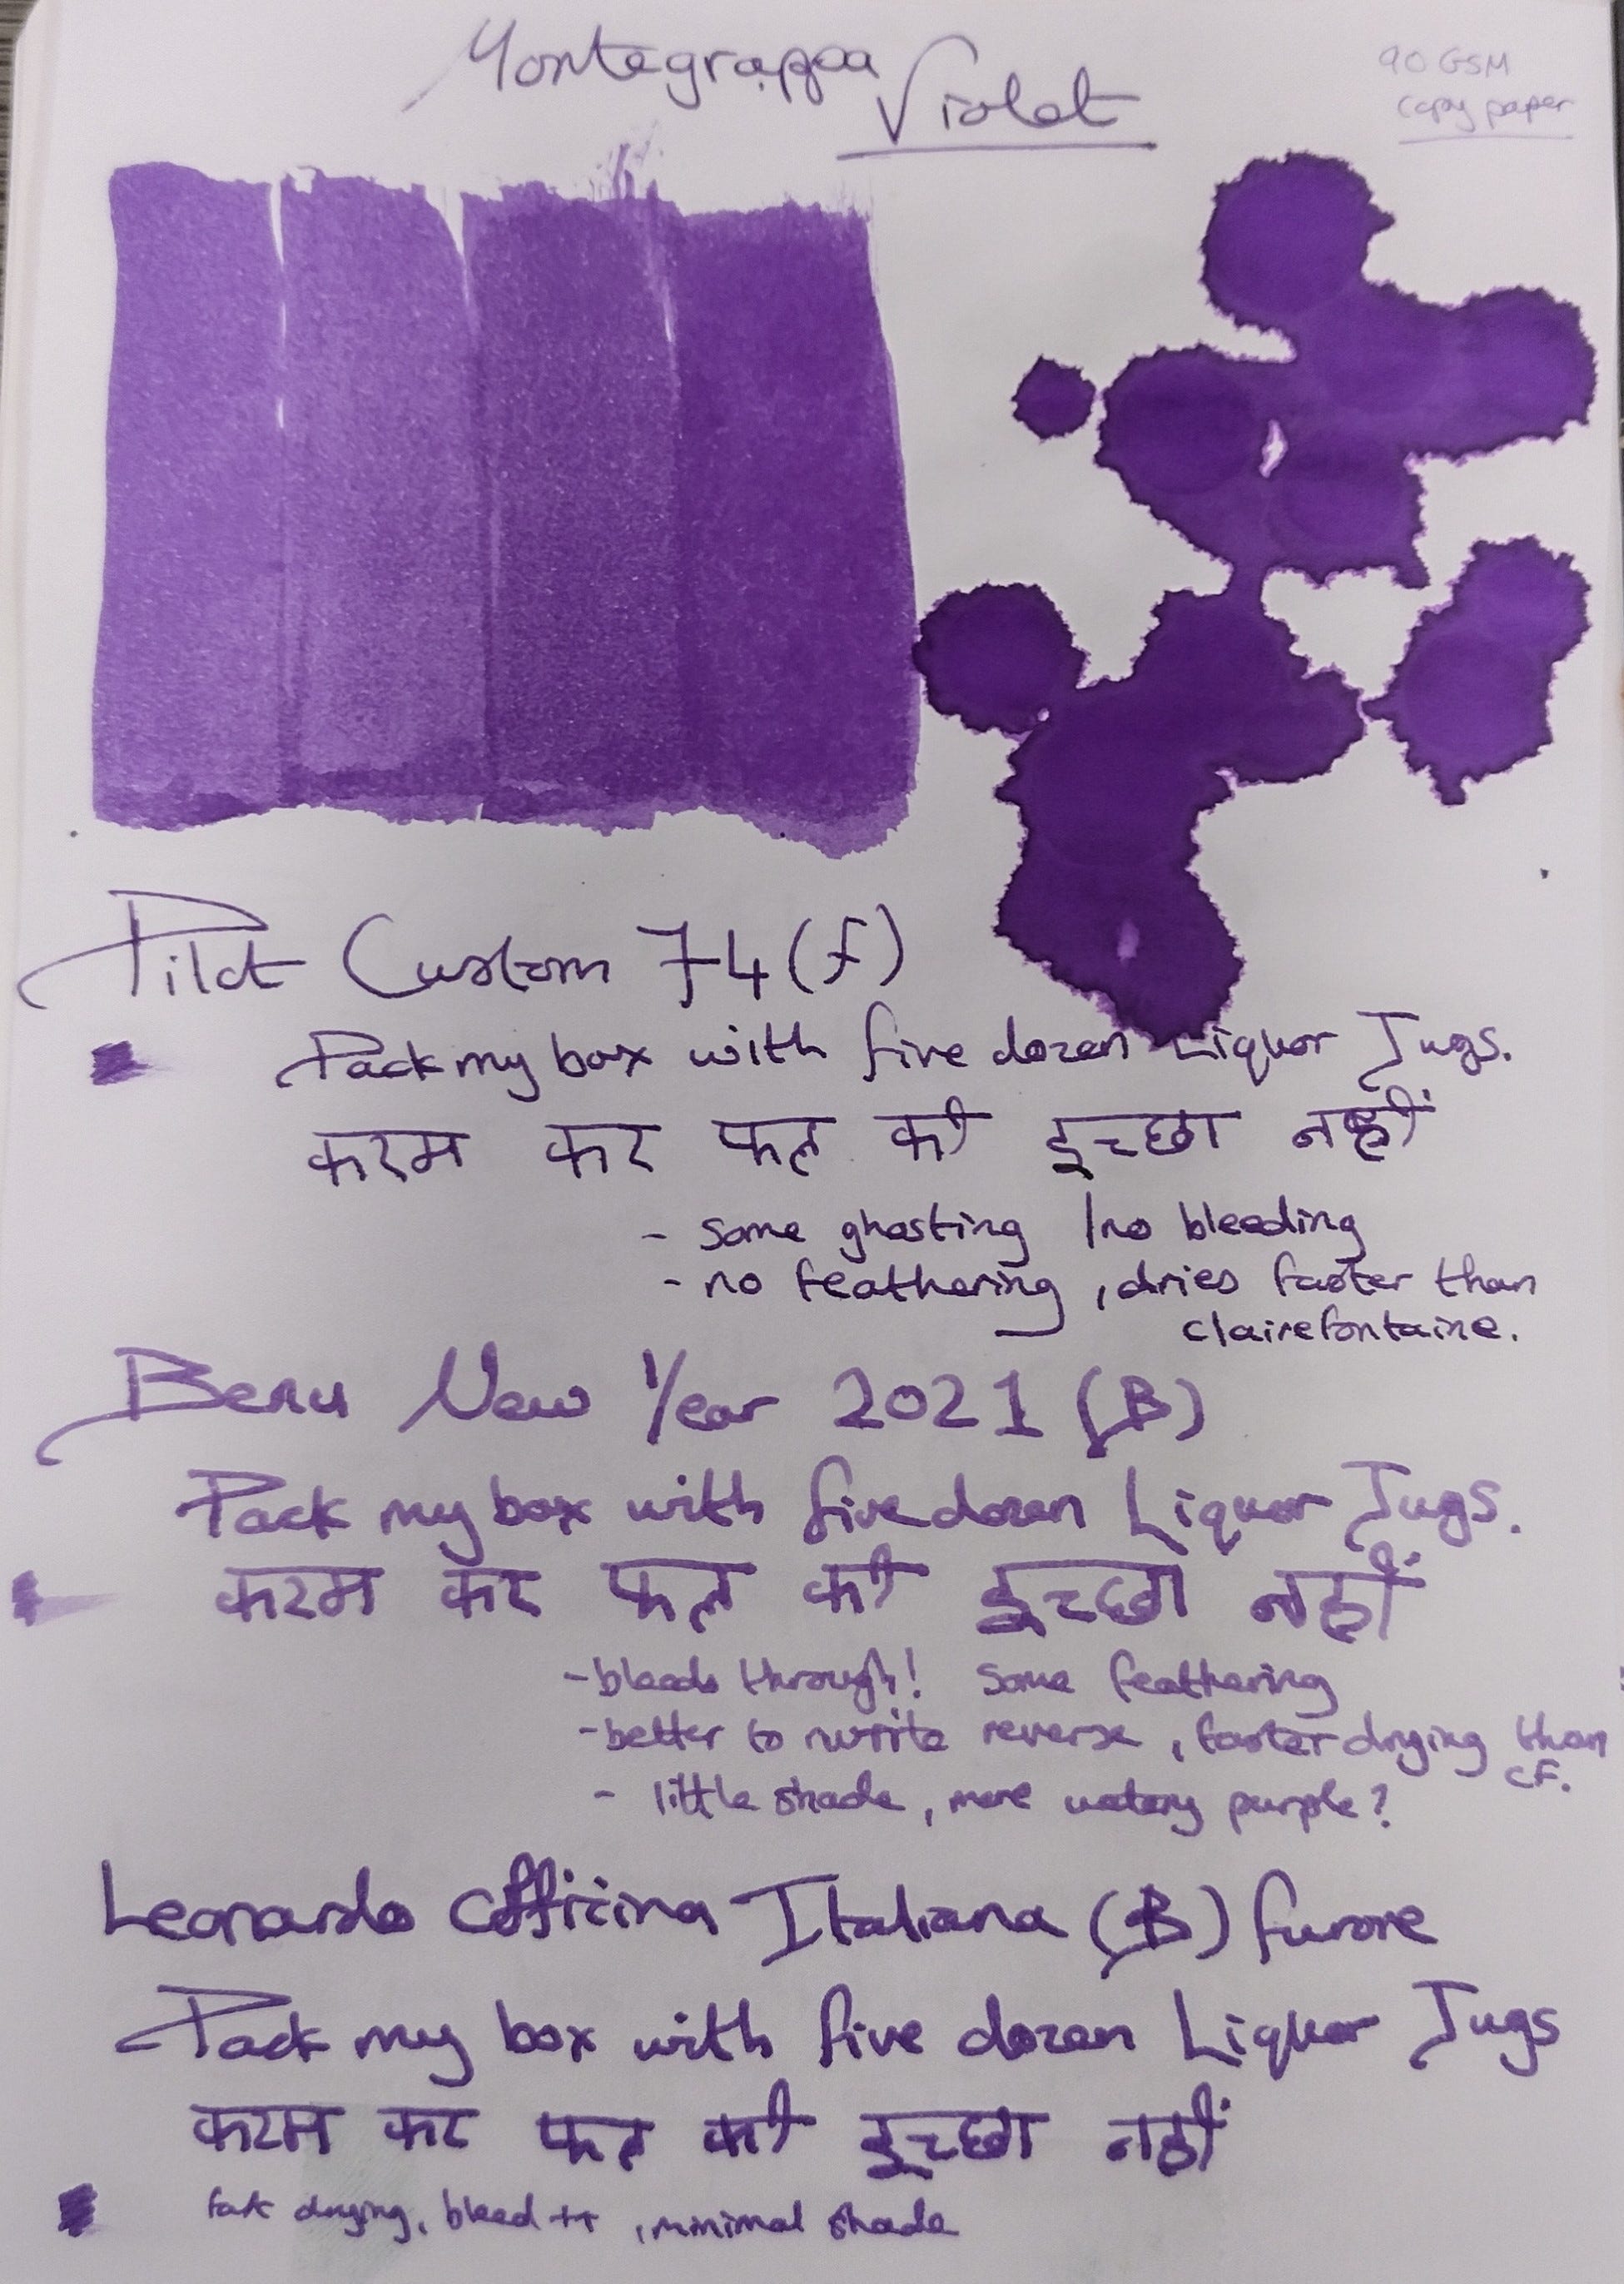 Montegrappa
Violet
90 GSM
copy paper
Pilot Custom 74 (f)
Pack my box with five dozen Liquor Jugs.
करम कर फल की इच्छा नहीं
- some ghosting / no bleeding
- no feathering, dries faster than
clairefontaine.
Benu New Year 2021 (B)
Pack my box with five dozen Liquor Jugs.
करम कर फल की इच्छा नहीं
- bleeds through! some feathering
- better to write reverse, faster drying than
CF.
- little shade, more watery purple?
Leonardo Officina Italiana (B) furore
Pack my box with five dozen Liquor Jugs
करम कर फल की इच्छा नहीं
fast drying, bleed ++, minimal shade